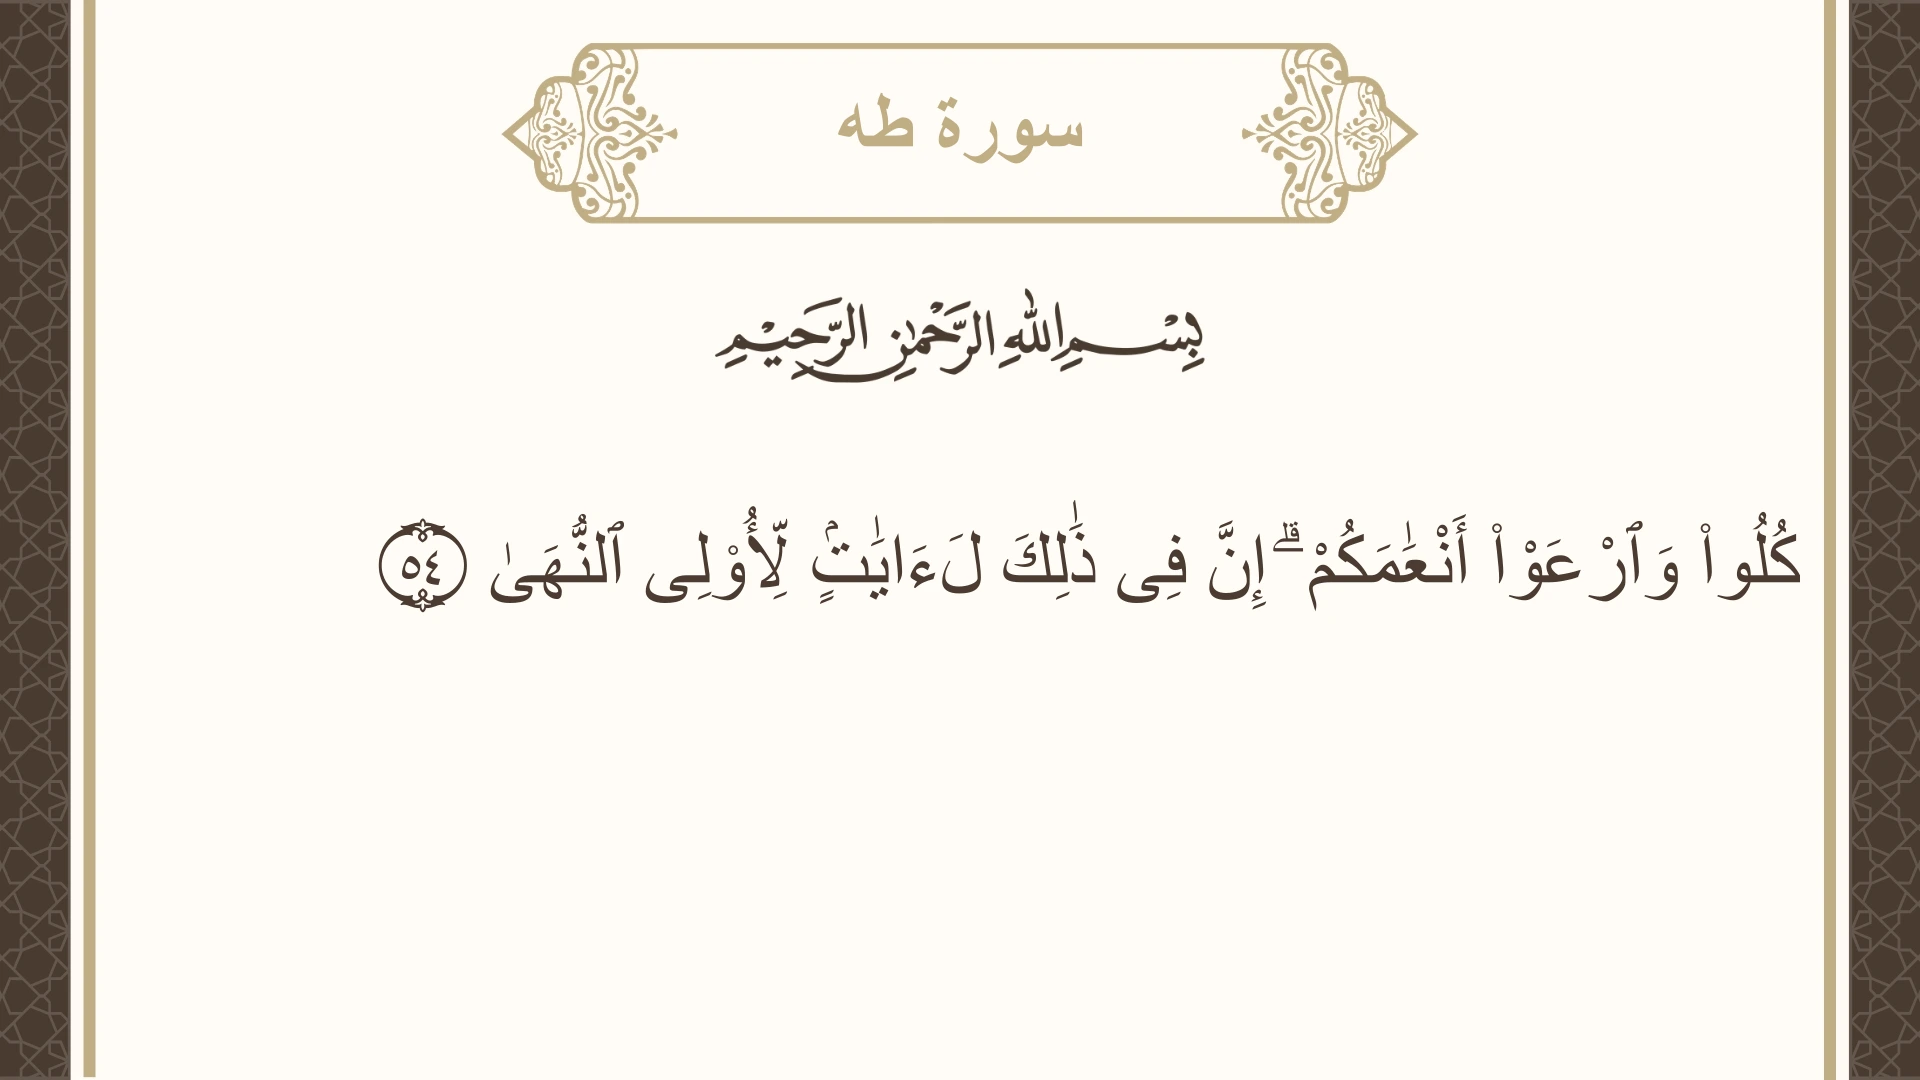 سورة طه
بِسْمِ اللهِ الرَّحْمٰنِ الرَّحِيْمِ
كُلُوا۟ وَٱرْعَوْا۟ أَنْعَـٰمَكُمْ ۗ إِنَّ فِى ذَٰلِكَ لَـَٔايَـٰتٍۢ لِّأُو۟لِى ٱلنُّهَىٰ ٥٤